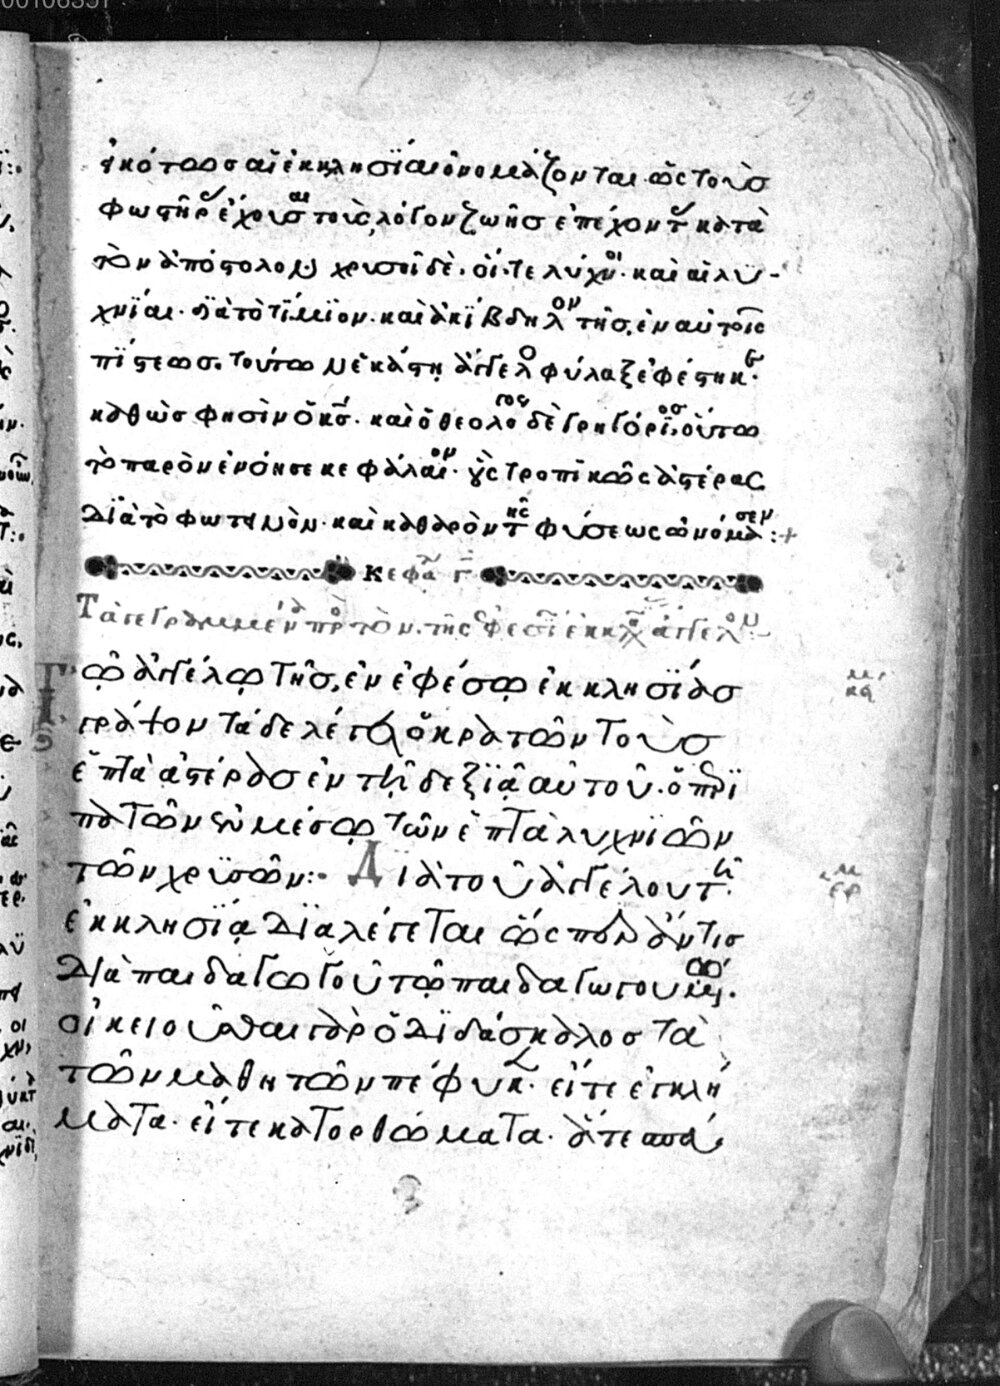 εἰκότως αἱ ἐκκλησΐαι ὀνομάζονται. ὡς τοὺς
φωστῆρας ἐχούσας τοὺς, λόγον ζωῆς ἐπέχοντας κατὰ
τὸν ἀπόστολον χρυσοῖ δὲ. οἵ τε λύχνοι. καὶ αἱ λυ-
χνΐαι. διὰ τὸ τίμϊον. καὶ ἀκίβδηλον τῆς, ἐν αὐτοῖς
πΐστεως. τούτων ἑκάστη ἄγγελος φύλαξ ἐφέστηκε.
καθὼς φησὶν ὁ κς. καὶ ὁ θεολόγος δὲ γρηγόριος, οὕτω
τὸ παρὸν ἐνόησε κεφάλαιον. οὓς τροπικῶς ἀστέρας
διὰ τὸ φωτεινὸν. καὶ καθαρὸν τῆς φύσεως ὠνόμασεν :+
κεφα γ
Τὰ γεγραμμένα πρὸς τὸν. τῆς ἐφεσΐ ἐκκλ ἄγγελον:-
Τῷ ἀγγέλῳ τῆς, ἐν ἐφέσῳ ἐκκλησΐας
γράψον τάδε λέγει ὁ κρατῶν τοὺς
ἑπτὰ ἀστέρας ἐν τῇ δεξϊᾷ αὐτοῦ. ὁ περϊ
πατῶν ἐν μέσῳ τῶν ἑπτὰ λυχνϊῶν
τῶν χρϋσῶν:· Διὰ τοῦ ἀγγέλου τῇ
ἐκκλησΐᾳ διαλέγεται ὡς περ ἄν τις
διὰ παιδαγωγοῦ τῷ παιδαγωγουμένῳ.
οἰκειοῦσθαι γὰρ ὁ διδάσκαλος τὰ
τῶν μαθητῶν πέφυκεν. εἴτε ἐγκλή
ματα. εἴτε κατορθώματα. ἅτε